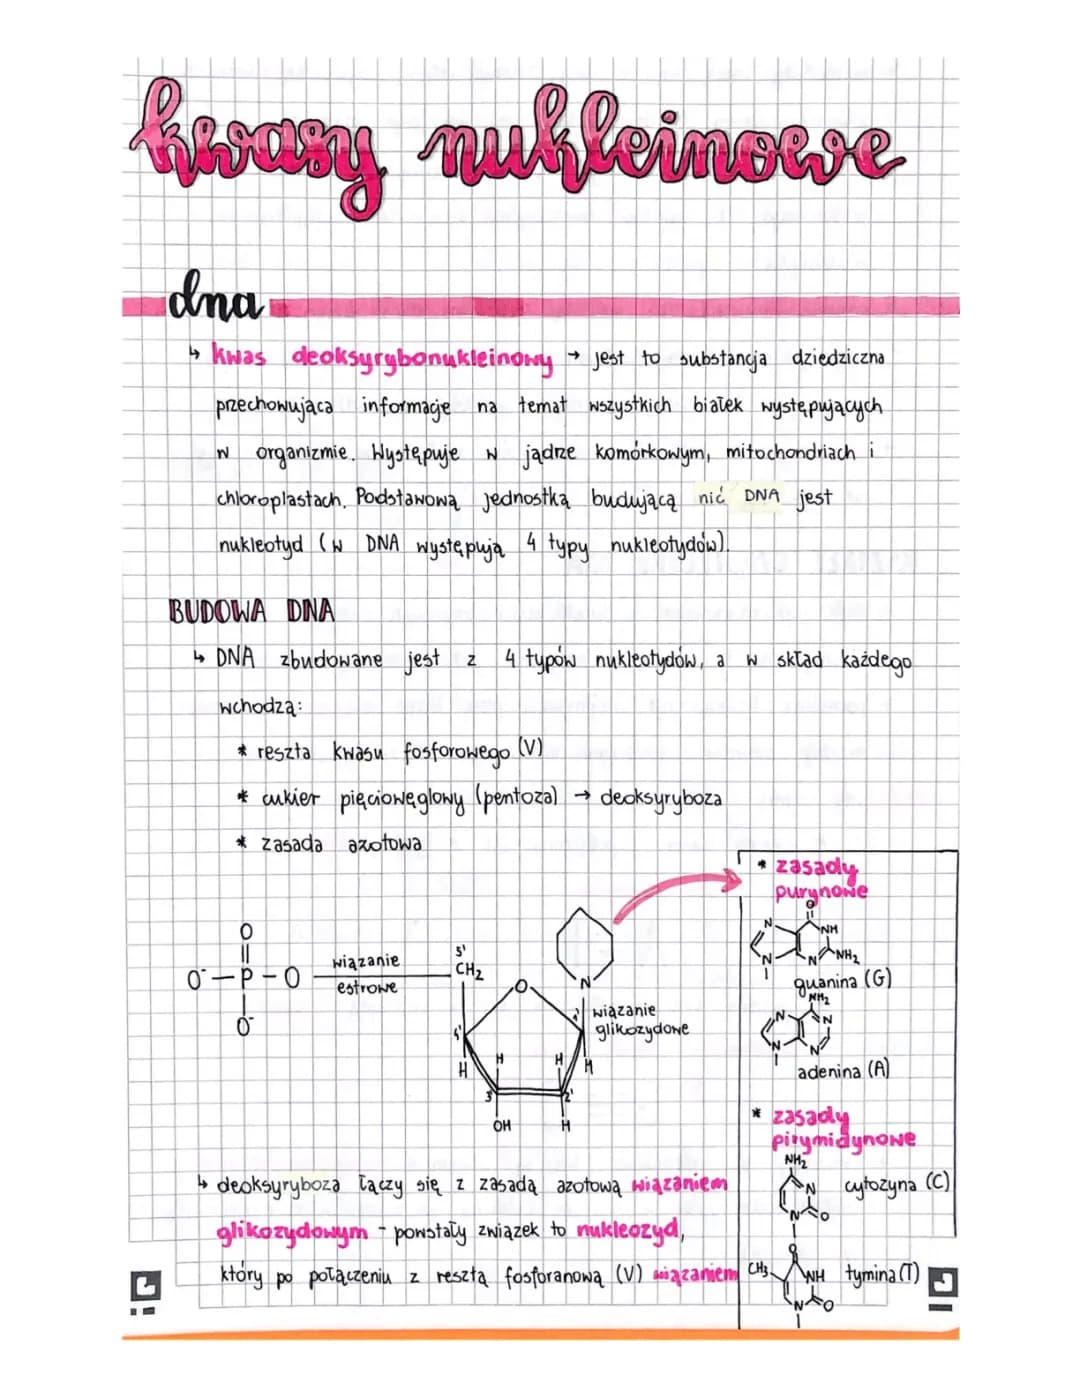 kwasy nukleinowe
dna
↳ kwas deoksyrybonukleinowy → jest to substancja dziedziczna
przechowująca informacje na temat wszystkich białek występujących
w organizmie. Występuje w jądrze komórkowym, mitochondriach i
chloroplastach. Podstawową jednostką budującą nić DNA jest
nukleotyd (w DNA występują 4 typy nukleotydów).
BUDOWA DNA
↳ DNA zbudowane jest z 4 typów nukleotydów, a w skład każdego
wchodzą:
* reszta kwasu fosforowego (V)
* cukier pięciowęglowy (pentoza) → deoksyryboza
* zasada azotowa
O
O⁻ — P — O
O⁻
wiązanie
estrowe
5'
CH₂
O
N
wiązanie
glikozydowe
4'
1'
H
H
H
H
3'
2'
OH
H
* zasady
purynowe
O
N
NH
N
N
NH₂
guanina (G)
NH₂
N
N
N
N
adenina (A)
* zasady
pirymidynowe
NH₂
N
N
O
cytozyna (C)
O
CH₃
NH
N
O
tymina (T)
↳ deoksyryboza łączy się z zasadą azotową wiązaniem
glikozydowym - powstały związek to nukleozyd,
który po połączeniu z resztą fosforanową (V) wiązaniem